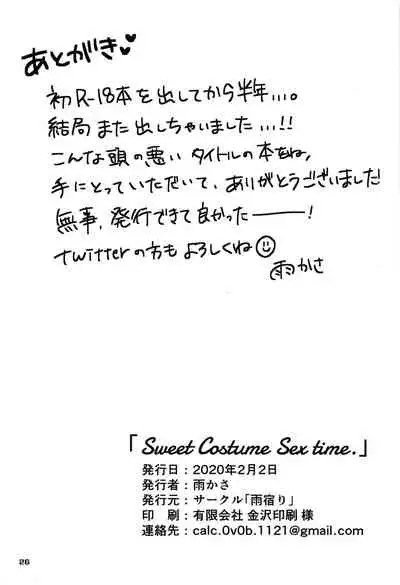 あとがき♥
初R-18本を出してから半年...。
結局また出しちゃいました...!!
こんな頭の悪いタイトルの本をね,
手にとっていただいて、ありがとうございました
無事、発行できて良かったーーー!
twitterの方もよろしくね☺
雨かさ
「Sweet Costume Sex time.」
発行日：2020年2月2日
発行者：雨かさ
発行元：サークル「雨宿り」
印　刷：有限会社 金沢印刷 様
連絡先：calc.0v0b.1121@gmail.com
26